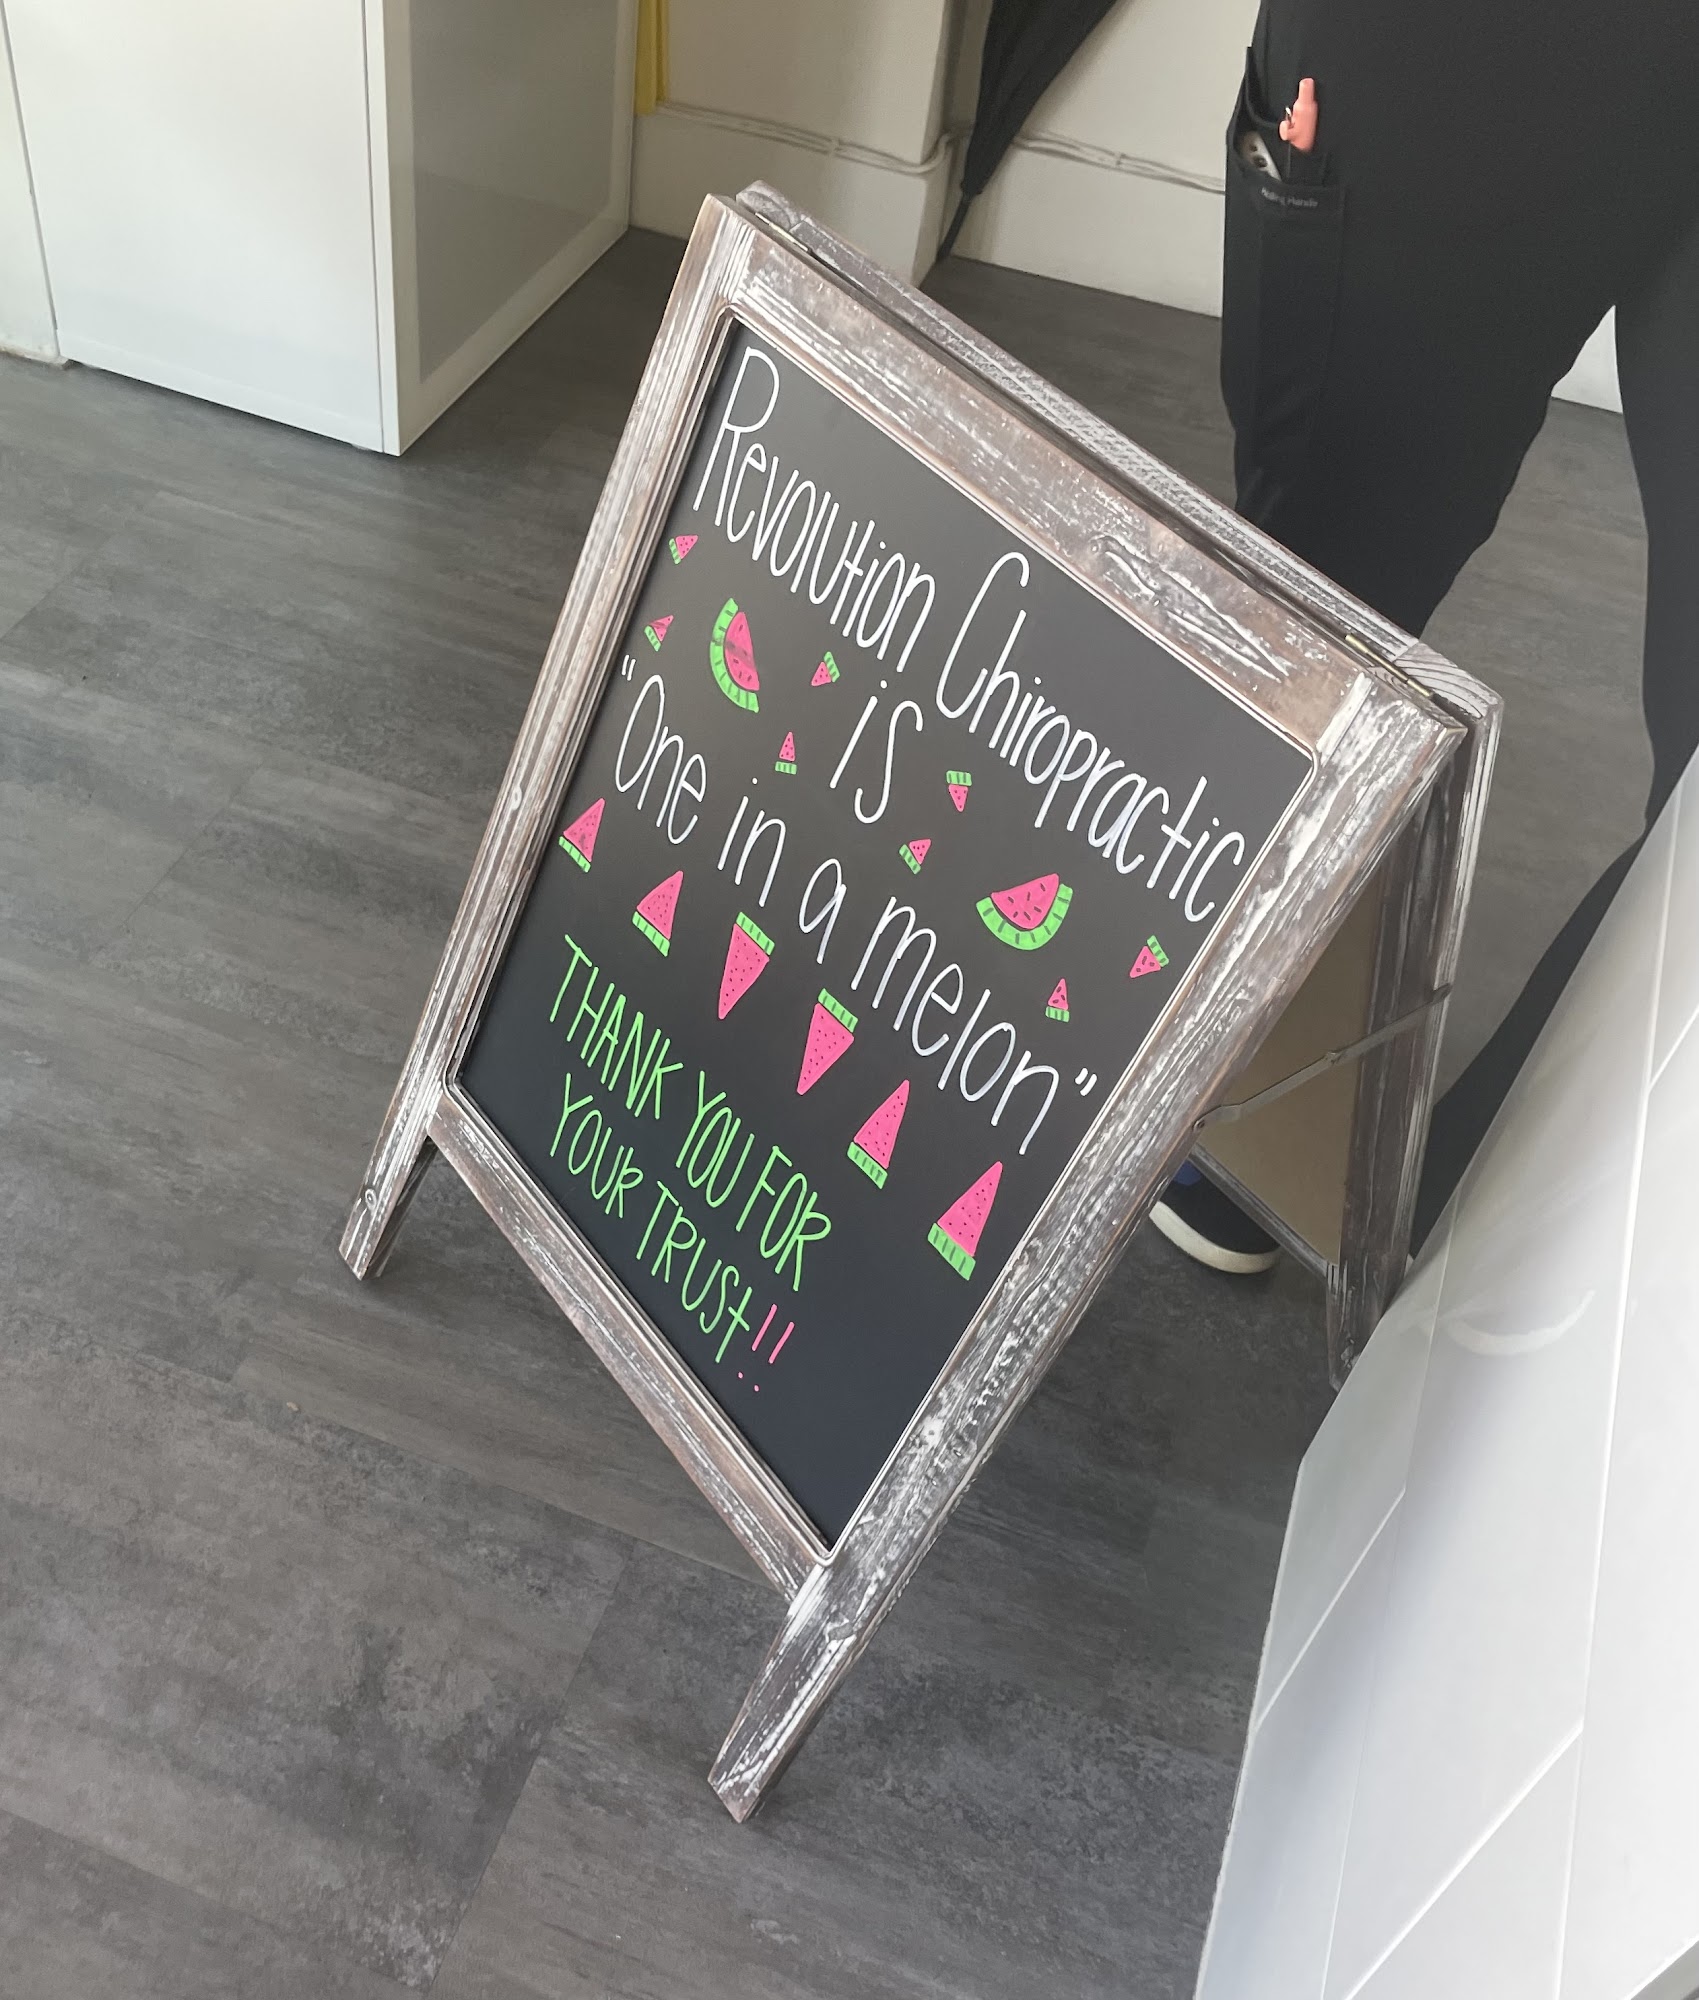 Revolution Chiropractic
is
"One in a melon"
THANK YOU FOR
YOUR TRUST!!
Healing Hands